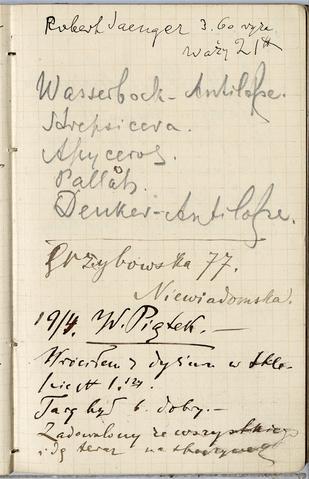 Robert Saenger 3.60
waży 21
Wasserbock-Antilope.
Strepsicera.
Apyceros.
Pallah.
Denker-Antilope.
Grzybowska 77.
Niewiadomska.
19/4. W. Piątek.—
Wróciłem z
Targ był b. dobry.—
Zadowolony ze wszystkiego
idę teraz na